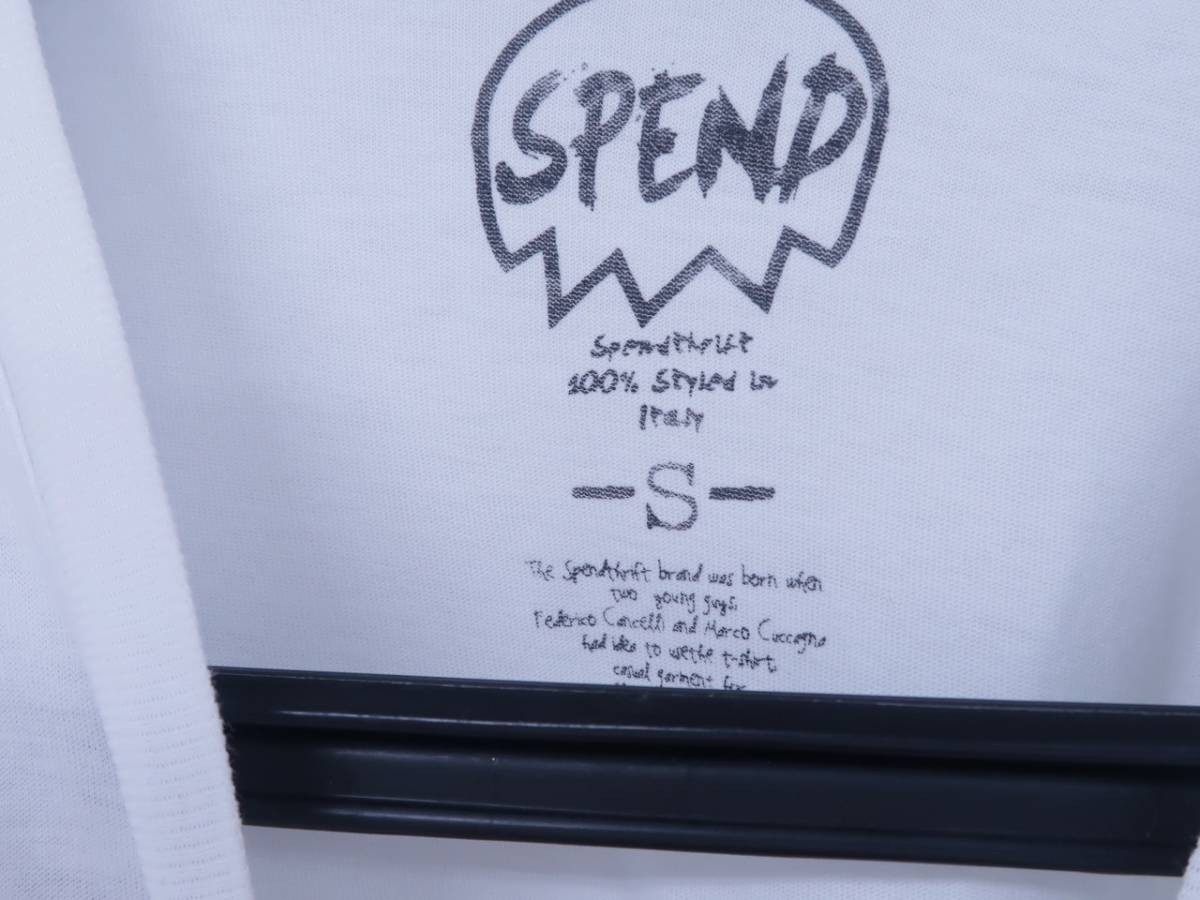 SPEND
Spendthrift
100% Styled in
Italy
-S-
The Spendthrift brand was born when
two young guys,
Federico Cancelli and Marco Cuccagna
had idea to use the t-shirt,
casual garment for